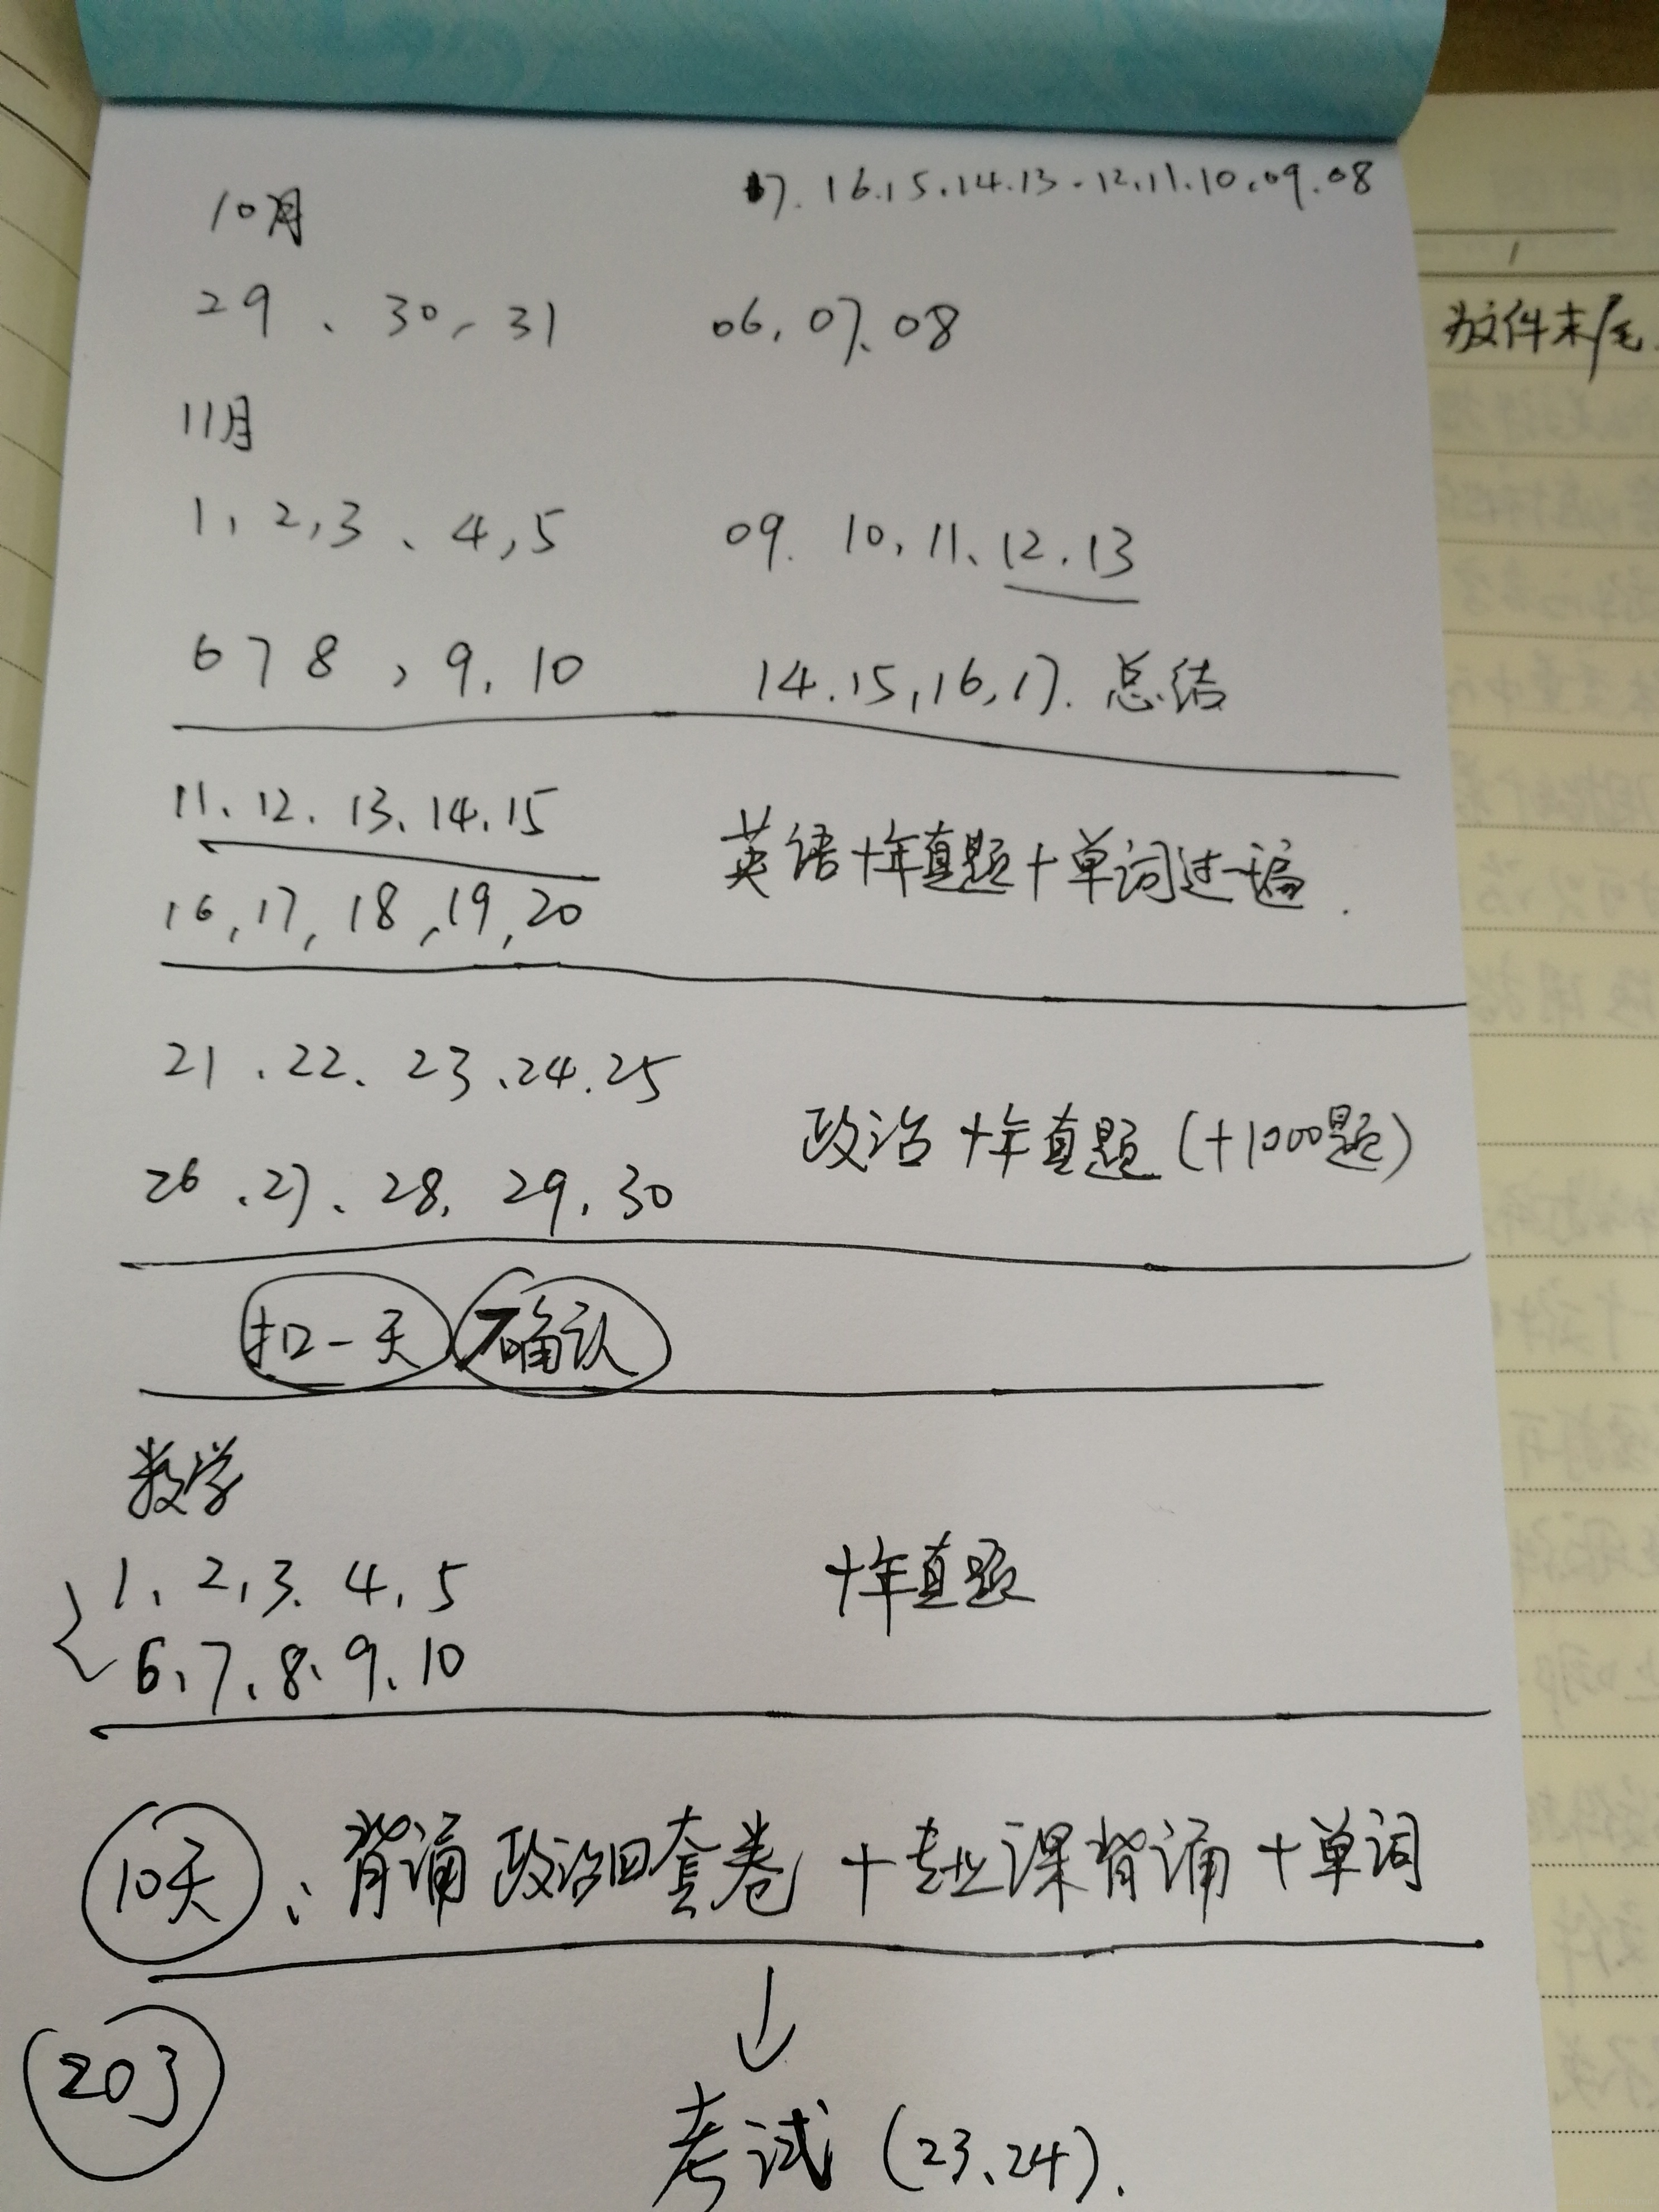 17.16.15.14.13.12.11.10.09.08
10月
29、30、31 06.07.08
11月
1、2,3、4,5 09.10、11、12.13
6 7 8,9.10 14.15,16,17.总结
11、12.13、14.15
英语十年真题+单词过一遍.
16,17,18,19,20
21、22、23、24.25
政治十年真题(+1000题)
26、27、28.29.30
扣一天 确认
数学
1、2,3、4,5 十年真题
6、7、8、9、10
10天:背诵政治四套卷+专业课背诵+单词
考试(23、24).
为文件末尾.